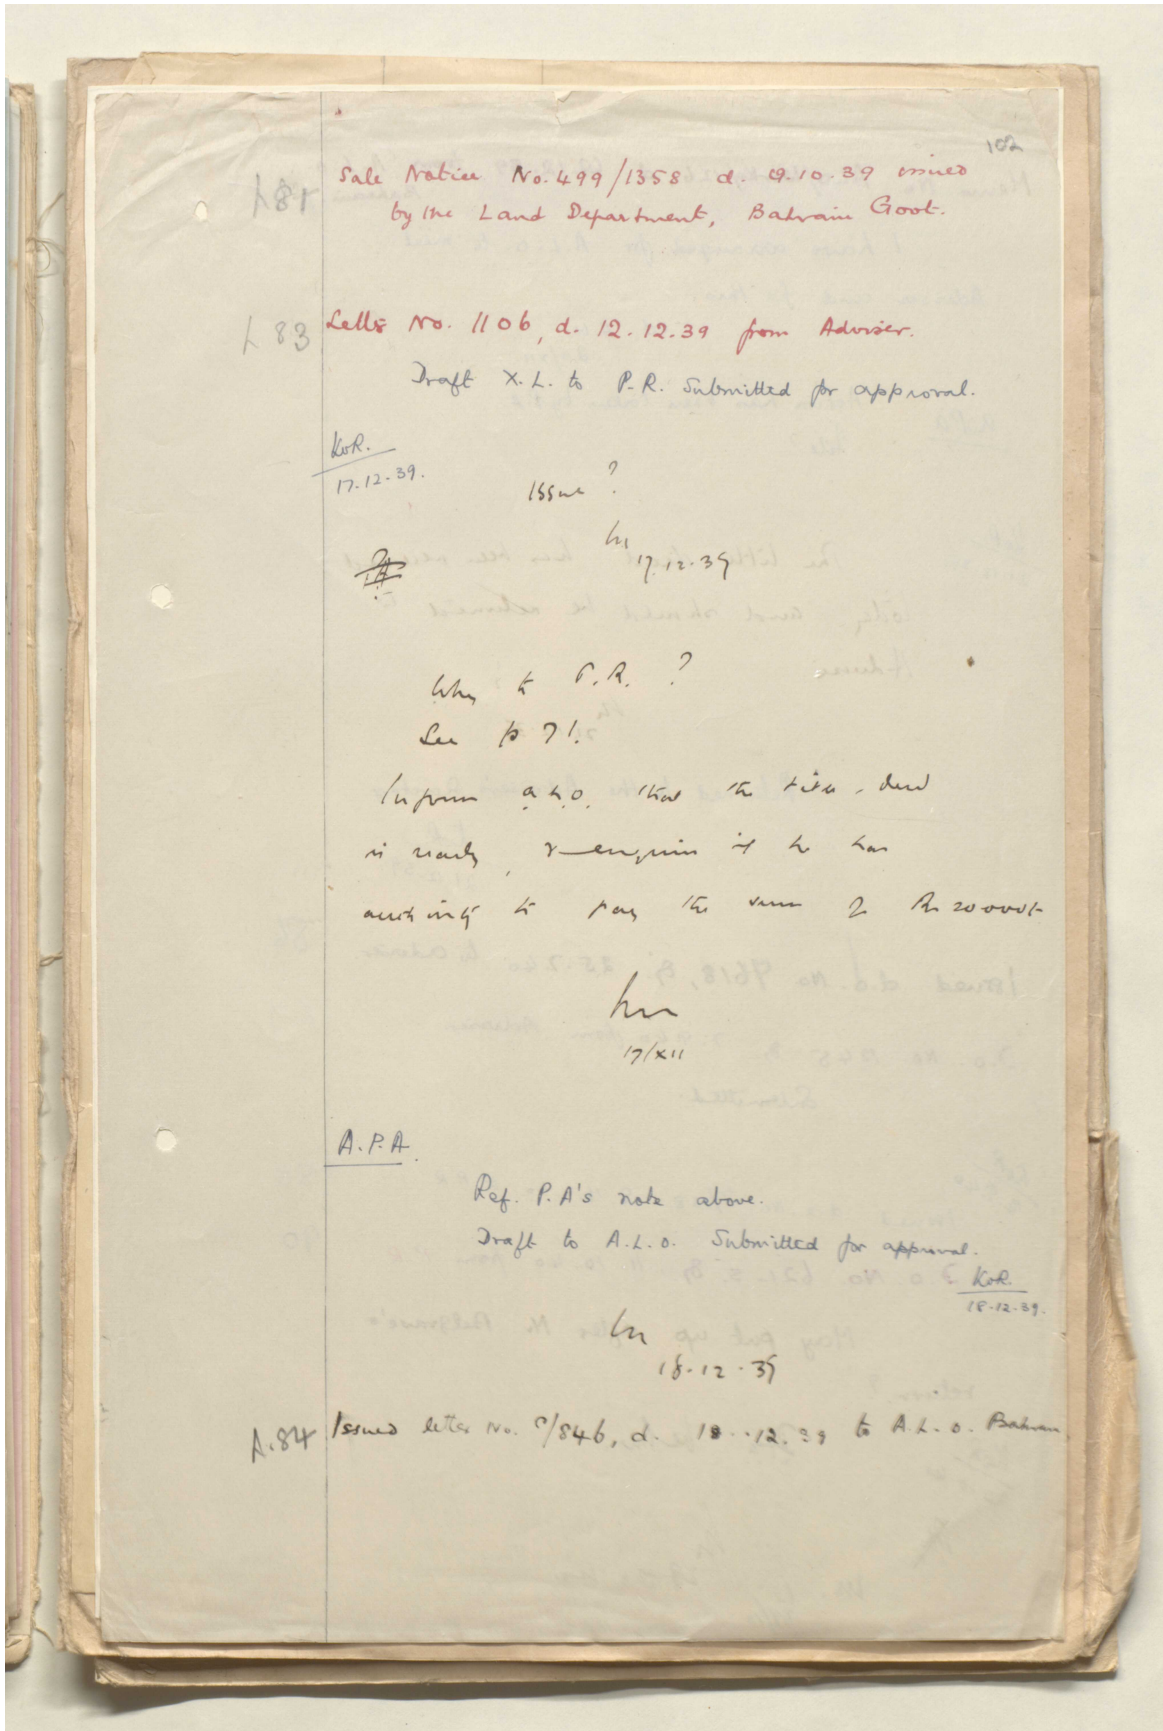 102
Sale Notice No. 499/1358 d. 9.10.39 issued
by the Land Department, Bahrain Govt.
83 Letter No. 1106, d. 12.12.39 from Adviser.
Draft X.L. to P.R. Submitted for approval.
KvR.
17.12.39.
Issue ?
17.12.39
P.A.
Why to P.R. ?
See p 71.
Inform A.L.O. that the title-deed
is ready, & enquire if he has
authority to pay the sum of Rs 20000/-
17/XII
A.P.A.
Ref. P.A's note above.
Draft to A.L.O. Submitted for approval.
KvR.
18.12.39.
18.12.39
A.84 Issued letter No. C/846, d. 18.12.39 to A.L.O. Bahrain